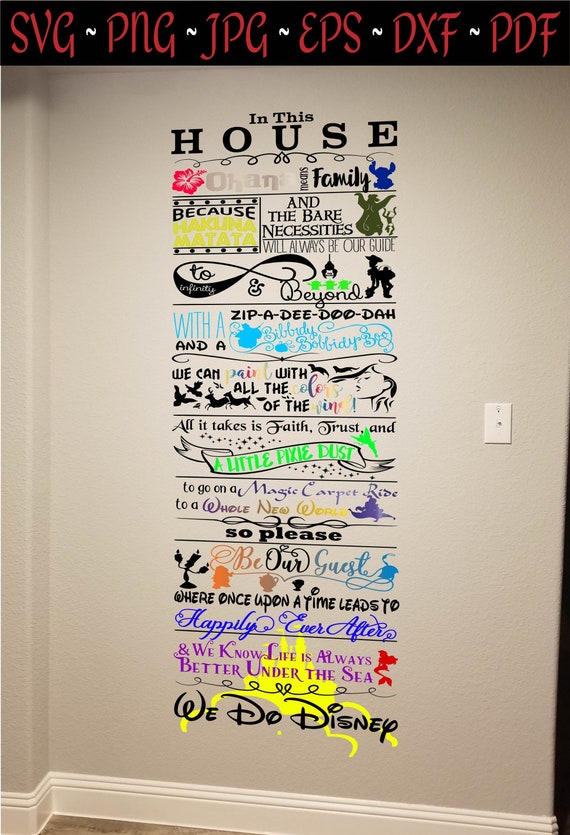 SVG ~ PNG ~ JPG ~ EPS ~ DXF ~ PDF
In This
HOUSE
Ohana means Family
BECAUSE
HAKUNA
MATATA
AND
THE BARE
NECESSITIES
WILL ALWAYS BE OUR GUIDE
to
infinity
& Beyond
WITH A ZIP-A-DEE-DOO-DAH
AND A Bibbidy Bobbidy Boo
WE CAN paint WITH
ALL THE colors
OF THE wind!
All it takes is Faith, Trust, and
A LITTLE PIXIE DUST
to go on a Magic Carpet Ride
to a Whole New World
so please
Be Our Guest
WHERE ONCE UPON A TIME LEADS TO
Happily Ever After
& WE KNOW LIFE IS ALWAYS
BETTER UNDER THE SEA
WE DO DISNEY